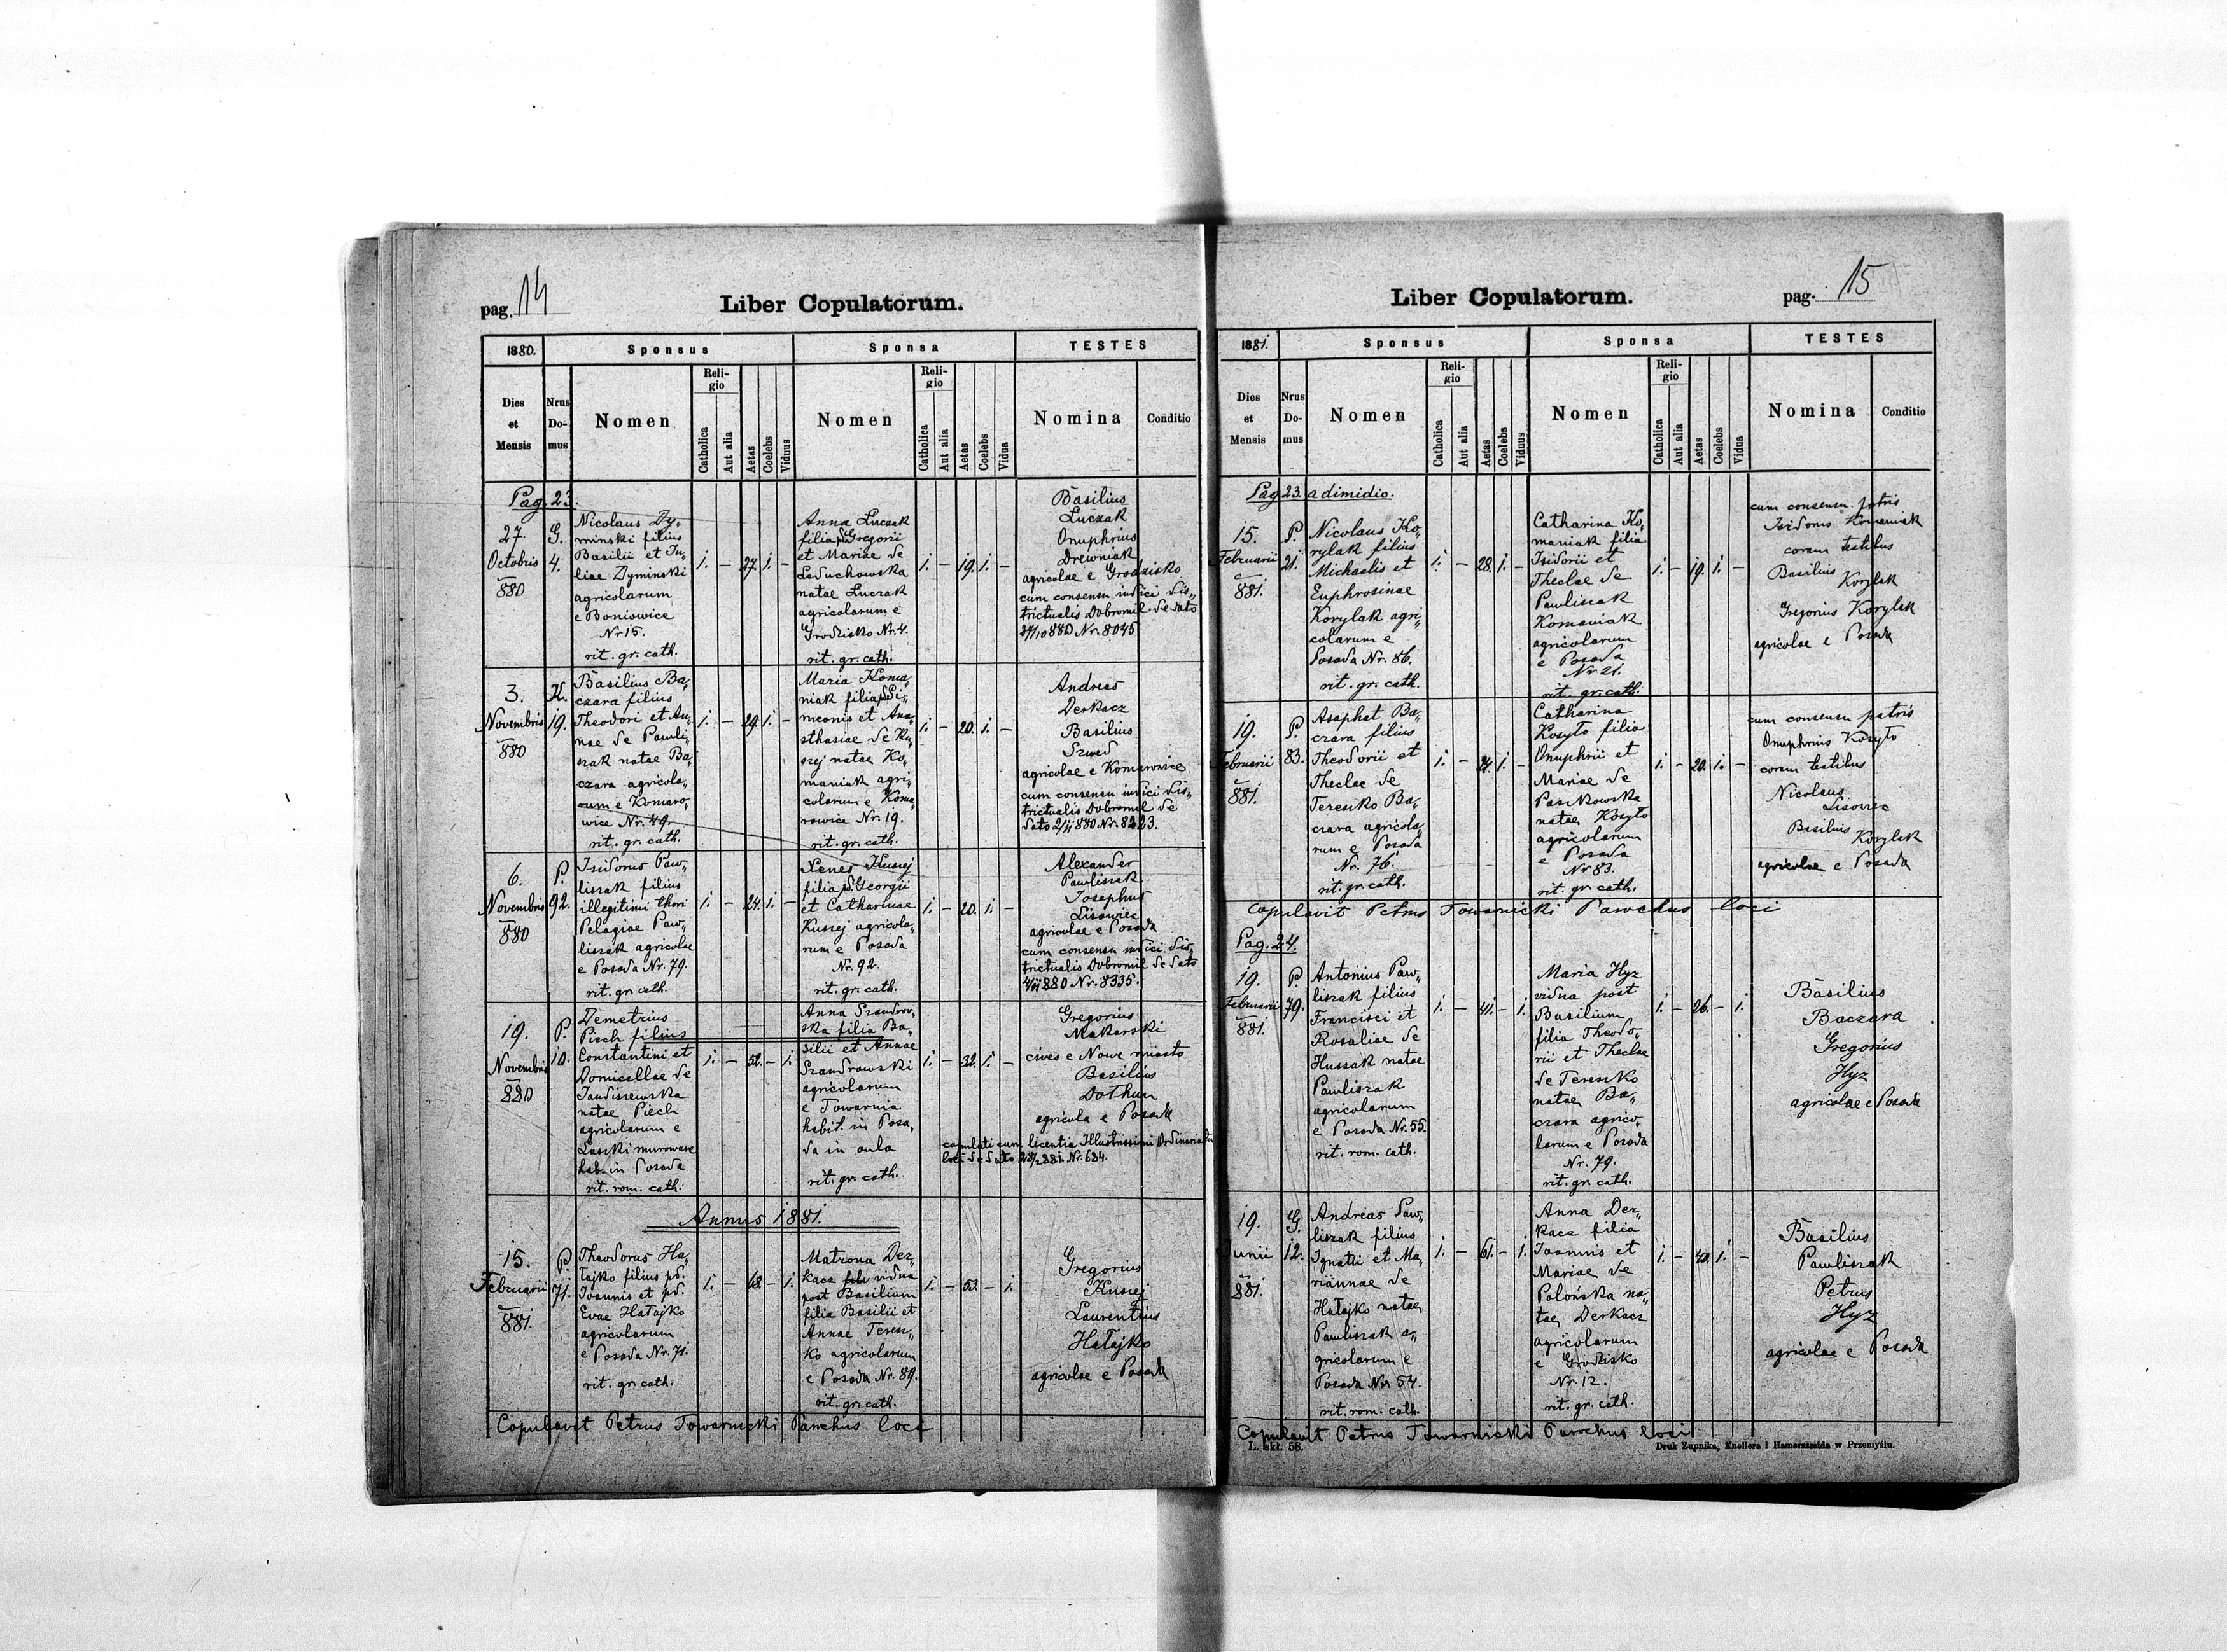 pag. 14
Liber Copulatorum.
1880.
Sponsus
Sponsa
TESTES
Dies et Mensis
Nrus Domus
Nomen
Religio
Catholica
Aut alia
Aetas
Coelebs
Viduus
Nomen
Religio
Catholica
Aut alia
Aetas
Coelebs
Vidua
Nomina
Conditio
Pag. 23.
27.
Octobris
880
G.
4.
Nicolaus Dy„
minski filius
Basilii et Ju„
liae Dyminski
agricolarum
e Boniowice
Nr 15.
rit. gr. cath.
1. — 27. 1. —
Anna Luczak
filia pd. Gregorii
et Mariae de
Laduchowska
natae Luczak
agricolarum e
Grodzisko Nr. 4.
rit. gr. cath.
1. — 19. 1. —
Basilius
Luczak
Onuphrius
Drewniak
agricolae e Grodzisko
cum consensu iudici dis„
trictualis Dobromil de dato
27/10 880 Nr. 8045
3.
Novembris
880
K.
19.
Basilius Ba„
czara filius
Theodori et An„
nae de Pawli„
szak natae Ba„
czara agricola„
rum e Komaro„
wice Nr. 49.
rit. gr. cath.
1. — 29. 1. —
Maria Koma„
niak filia pd. Si„
meonis et Ana„
sthasiae de Ku„
szej natae Ko„
maniak agri„
colarum e Koma„
rowice Nr. 19.
rit. gr. cath.
1. — 20. 1. —
Andreas
Derkacz
Basilius
Szwed
agricolae e Komarowice
cum consensu iudici dis„
trictualis Dobromil de
dato 2/11 880 Nr. 8223.
6.
Novembris
880
P.
92.
Isidorus Paw„
liszak filius
illegitimi thori
Pelagiae Paw„
liszak agricolae
e Posada Nr. 79.
rit. gr. cath.
1. — 24. 1. —
Xenes Kuszej
filia pd. Georgii
et Catharinae
Kuszej agricola„
rum e Posada
Nr. 92.
rit. gr. cath.
1. — 20. 1. —
Alexander
Pawliszak
Josephus
Lisowiec
agricolae e Posada
cum consensu iudici dis„
trictualis Dobromil de dato
4/11 880 Nr. 8335.
19.
Novembris
880
P.
10.
Demetrius
Piech filius
Constantini et
Domicellae de
Jandiszewska
natae Piech
agricolarum e
Laszki murowane
hab. in Posada
rit. rom. cath.
1. — 52. — 1.
Anna Szandrow„
ska filia Ba„
silii et Annae
Szandrowski
agricolarum
e Towarnia
habit. in Posa„
da in aula
rit. gr. cath.
1. — 32. 1. —
Gregorius
Makarski
cives e Nowe miasto
Basilius
Dothun
agricola e Posada
copulati cum licentia Illustrissimi Ordinariatu
loci de dato 28/2 881. Nr. 684.
Annus 1881.
15.
Februarii
881.
P.
71.
Theodorus Ha„
łajko filius pd.
Joannis et pd.
Evae Hałajko
agricolarum
e Posada Nr. 71.
rit. gr. cath.
1. — 68. — 1.
Matrona Der„
kacz vidua
post Basilium
filia Basilii et
Annae Teresz„
ko agricolarum
e Posada Nr. 89.
rit. gr. cath.
1. — 53. — 1.
Gregorius
Kuszej
Laurentius
Hałajko
agricolae e Posada
Copulavit Petrus Towarnicki Parochus loci
Liber Copulatorum.
pag. 15
1881.
Sponsus
Sponsa
TESTES
Dies et Mensis
Nrus Domus
Nomen
Religio
Catholica
Aut alia
Aetas
Coelebs
Viduus
Nomen
Religio
Catholica
Aut alia
Aetas
Coelebs
Vidua
Nomina
Conditio
Pag. 23. a dimidio.
15.
Februarii
881.
P.
21.
Nicolaus Ko„
rylak filius
Michaelis et
Euphrosinae
Korylak agri„
colarum e
Posada Nr. 86.
rit. gr. cath.
1. — 28. 1. —
Catharina Ko„
maniak filia
Isidorii et
Theclae de
Pawliszak
Komaniak
agricolarum
e Posada
Nr 21.
rit. gr. cath.
1. — 19. 1. —
cum consensu patris
Isidoris Komaniak
coram testibus
Basilius
Korylak
Gregorius Korylak
agricolae e Posada
19.
Februarii
881.
P.
83.
Asaphat Ba„
czara filius
Theodorii et
Theclae de
Tereszko Ba„
czara agricola„
rum e Posada
Nr. 76.
rit. gr. cath.
1. — 24. 1. —
Catharina
Koszyło filia
Onuphrii et
Mariae de
Paszkowska
natae Koszyło
agricolarum
e Posada
Nr 83.
rit. gr. cath.
1. — 20. 1. —
cum consensu patris
Onuphrius Koszyło
coram testibus
Nicolaus
Lisowiec
Basilius
Korylak
agricolae e Posada
Copulavit Petrus Towarnicki Parochus loci
Pag. 24.
19.
Februarii
881.
P.
79.
Antonius Paw„
liszak filius
Francisci et
Rosaliae de
Hussak natae
Pawliszak
agricolarum
e Posada Nr. 55.
rit. rom. cath.
1. — 41. — 1.
Maria Hyz
vidua post
Basilium
filia Theodo„
rii et Theclae
de Tereszko
natae Ba„
czara agrico„
larum e Posada
Nr. 79.
rit. gr. cath.
1. — 26. — 1.
Basilius
Baczara
Gregorius
Hyz
agricolae e Posada
19.
Junii
881.
G.
12.
Andreas Paw„
liszak filius
Ignatii et Ma„
riannae de
Hałajko natae
Pawliszak a„
gricolarum e
Posada Nr 54.
rit. rom. cath.
1. — 61. — 1.
Anna Der„
kacz filia
Joannis et
Mariae de
Polońska na„
tae Derkacz
agricolarum
e Grodzisko
Nr. 12.
rit. gr. cath.
1. — 40. 1. —
Basilius
Pawliszak
Petrus
Hyz
agricolae e Posada
Copulavit Petrus Towarnicki Parochus loci
L. skł. 58.
Druk Żupnika, Knollera i Hamerszmida w Przemyślu.